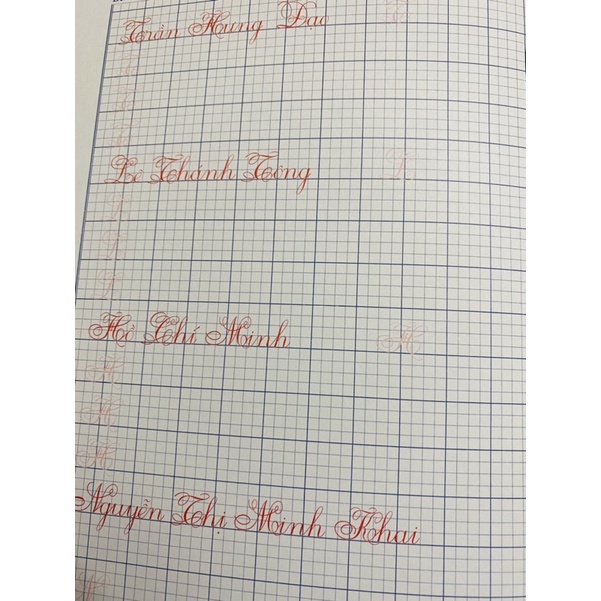 Trần Hưng Đạo
T
T
T
T
Lê Thánh Tông
L
L
L
L
Hồ Chí Minh
H
H
H
H
Nguyễn Thị Minh Khai
N